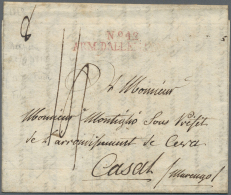 No 43
ARM. D'ALLE
à Monsieur
Monsieur Montiglio Sous Préfet
de l'arrondissement de Ceva
Casal (Marengo)